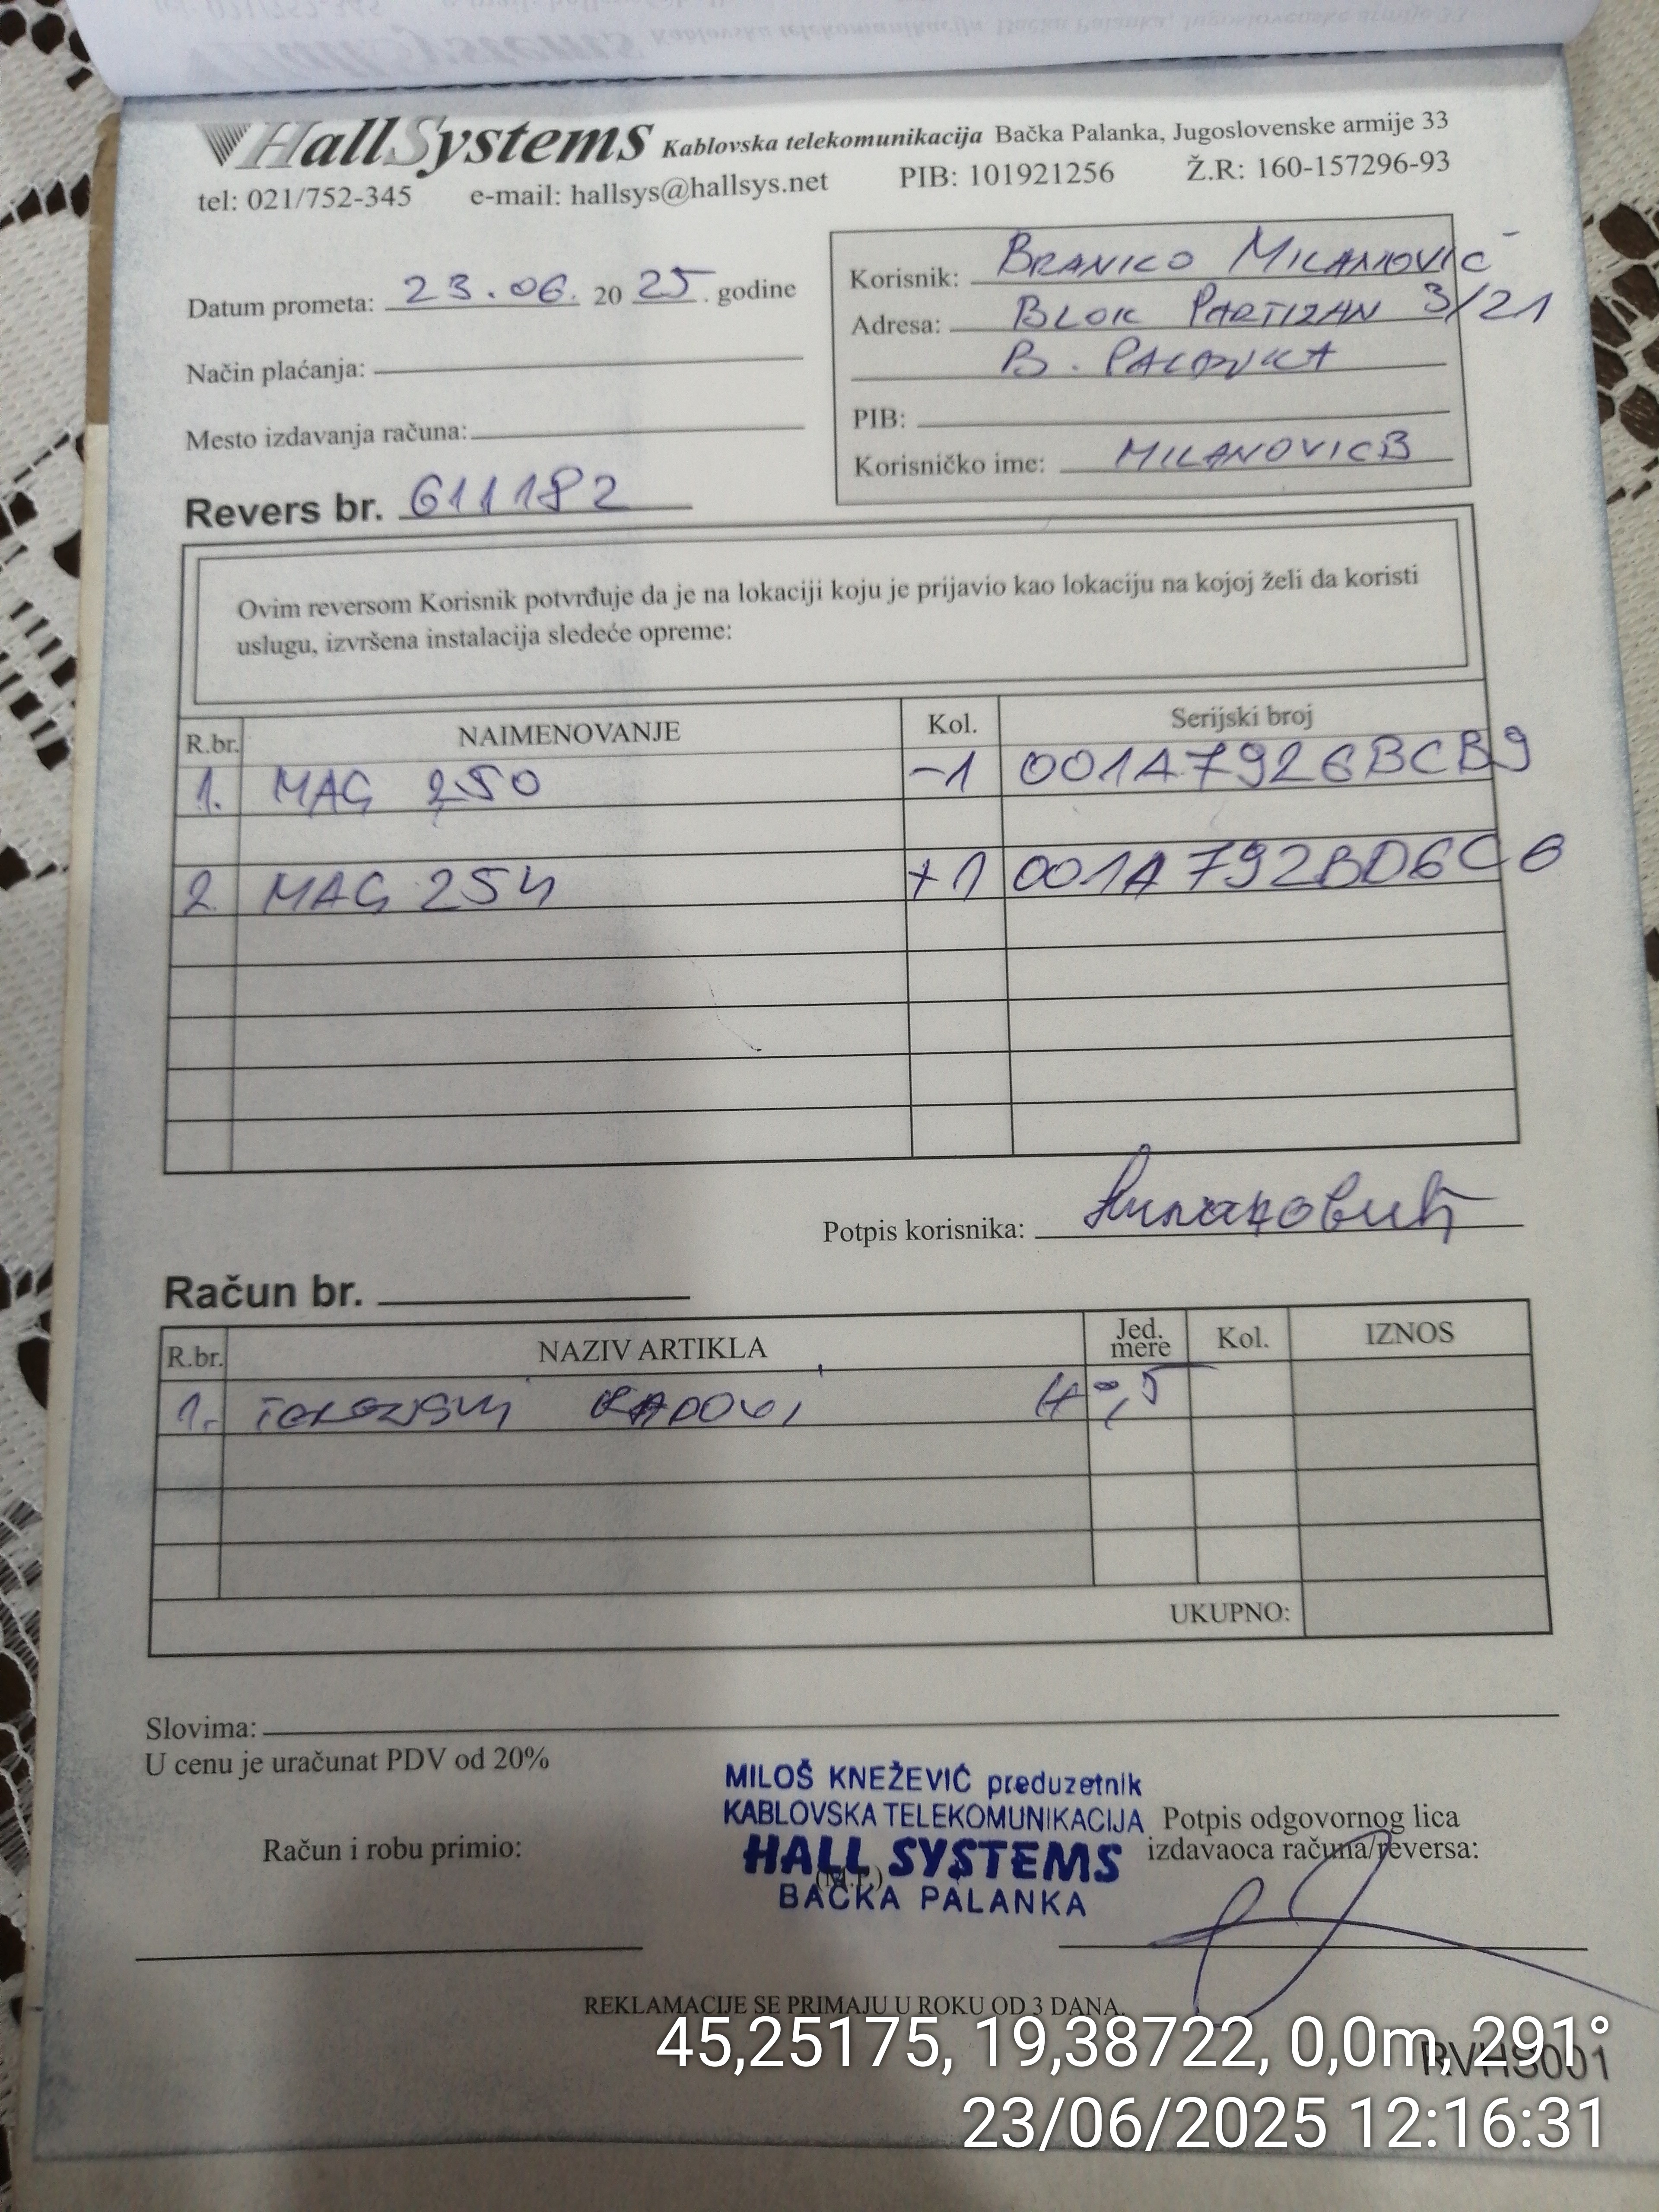 HallSystems Kablovska telekomunikacija Bačka Palanka, Jugoslovenske armije 33
tel: 021/752-345 e-mail: hallsys@hallsys.net PIB: 101921256 Ž.R: 160-157296-93
Datum prometa: 23.06. 20 25. godine
Način plaćanja:
Mesto izdavanja računa:
Revers br. 611182
Korisnik: BRANKO MILANOVIĆ
Adresa: BLOK PARTIZAN 3/21
B. PALANKA
PIB:
Korisničko ime: MILANOVICB
Ovim reversom Korisnik potvrđuje da je na lokaciji koju je prijavio kao lokaciju na kojoj želi da koristi
uslugu, izvršena instalacija sledeće opreme:
R.br. NAIMENOVANJE Kol. Serijski broj
1. MAG 250 -1 001A7926BCB9
2. MAG 254 +1 001A792BD6C6
Potpis korisnika: Милановић
Račun br.
R.br. NAZIV ARTIKLA Jed. mere Kol. IZNOS
1. TERENSKI RADOVI
UKUPNO:
Slovima:
U cenu je uračunat PDV od 20%
MILOŠ KNEŽEVIĆ preduzetnik
KABLOVSKA TELEKOMUNIKACIJA
HALL SYSTEMS
BAČKA PALANKA
(M.P.)
Račun i robu primio:
Potpis odgovornog lica
izdavaoca računa/reversa:
REKLAMACIJE SE PRIMAJU U ROKU OD 3 DANA.
RVHS001
45,25175, 19,38722, 0,0m, 291°
23/06/2025 12:16:31